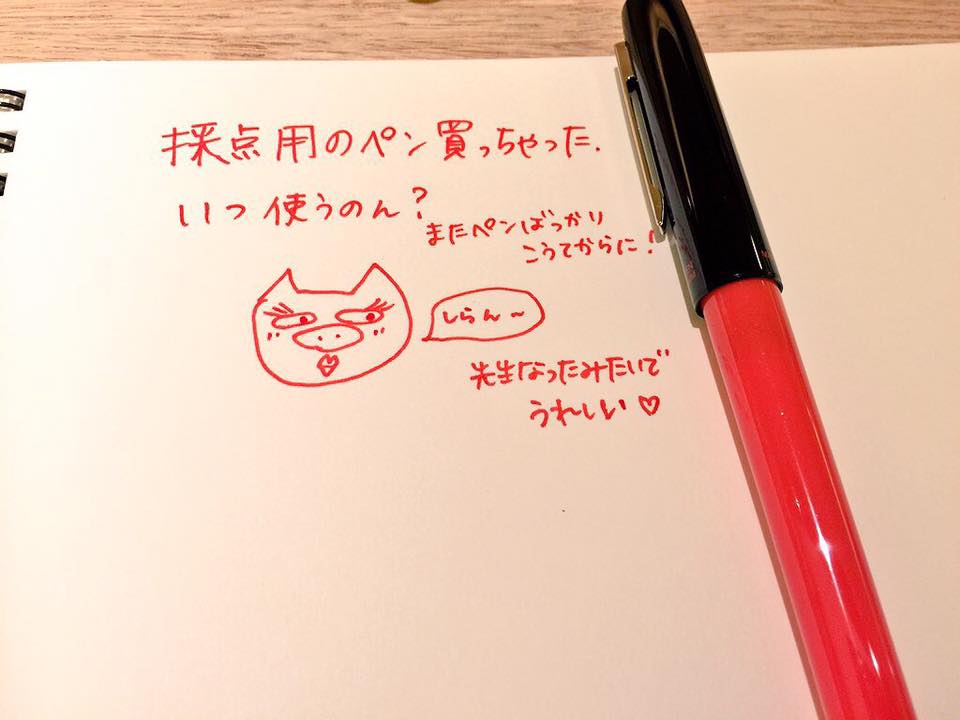 採点用のペン買っちゃった.
いつ使うのん?
またペンばっかり
こうてからに!
しらん~
先生なったみたいで
うれしい♡